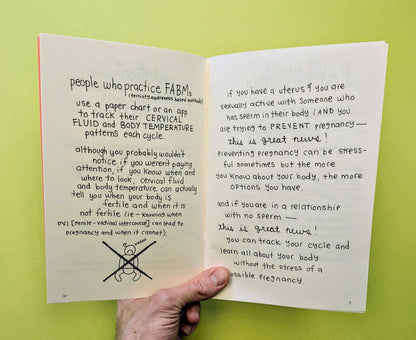 people who practice FABMs
(fertility awareness based methods)
use a paper chart or an app
to track their CERVICAL
FLUID and BODY TEMPERATURE
patterns each cycle.
although you probably wouldn't
notice if you weren't paying
attention, if you know when and
where to look, cervical fluid
and body temperature can actually
tell you when your body is
fertile and when it is
not fertile (ie - knowing when
PVI [penile-vaginal intercourse] can lead to
pregnancy and when it cannot).
if you have a uterus & you are
sexually active with someone who
has sperm in their body (AND you
are trying to PREVENT pregnancy—
this is great news!
preventing pregnancy can be stress-
ful sometimes but the more
you know about your body, the more
options you have.
and if you are in a relationship
with no sperm —
this is great news!
you can track your cycle and
learn all about your body
without the stress of a
possible pregnancy.